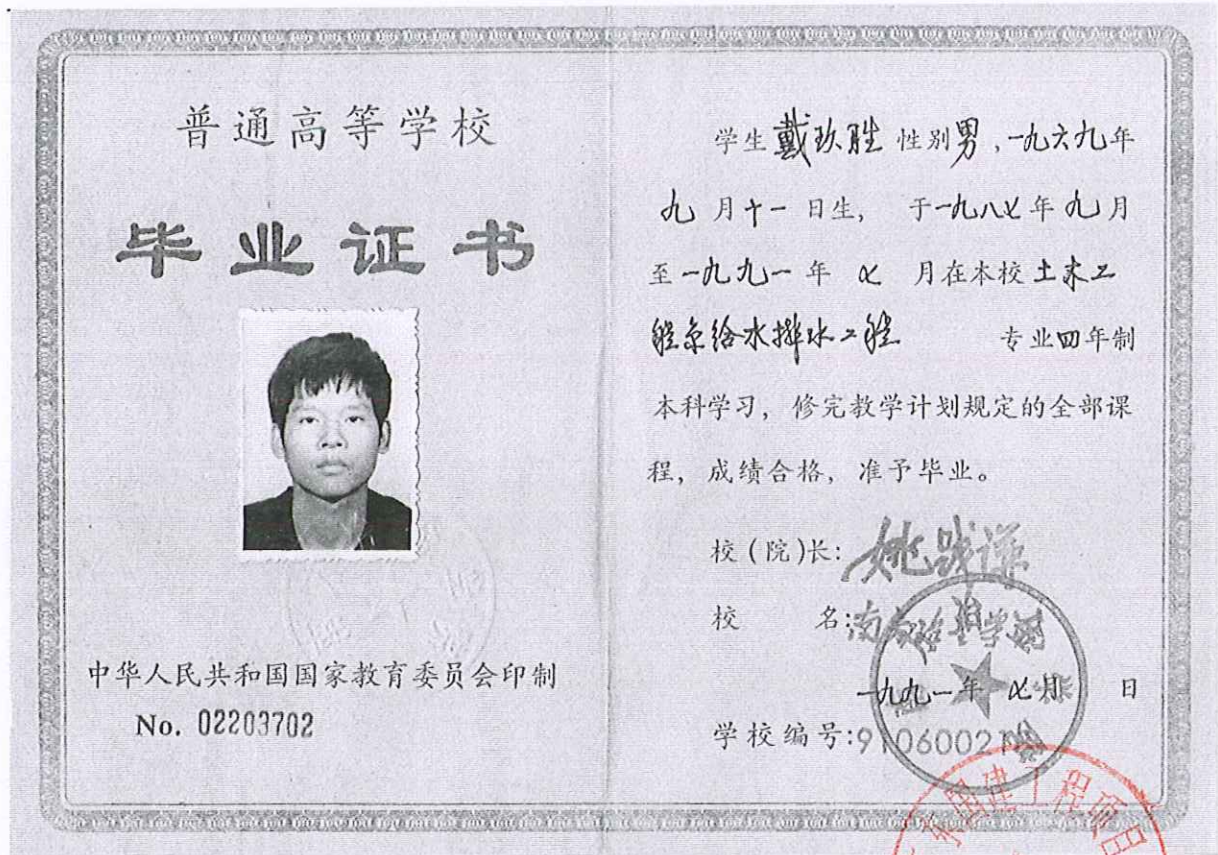 普通高等学校
毕业证书
中华人民共和国国家教育委员会印制
No. 02203702
学生戴玖胜 性别男，一九六九年
九月十一日生， 于一九八七年九月
至一九九一年 七 月在本校土木工
程系给水排水工程 专业四年制
本科学习，修完教学计划规定的全部课
程，成绩合格，准予毕业。
校(院)长:
校 名:南京建筑工程学院
一九九一年 七月 日
学校编号:9106002
国建工程项目